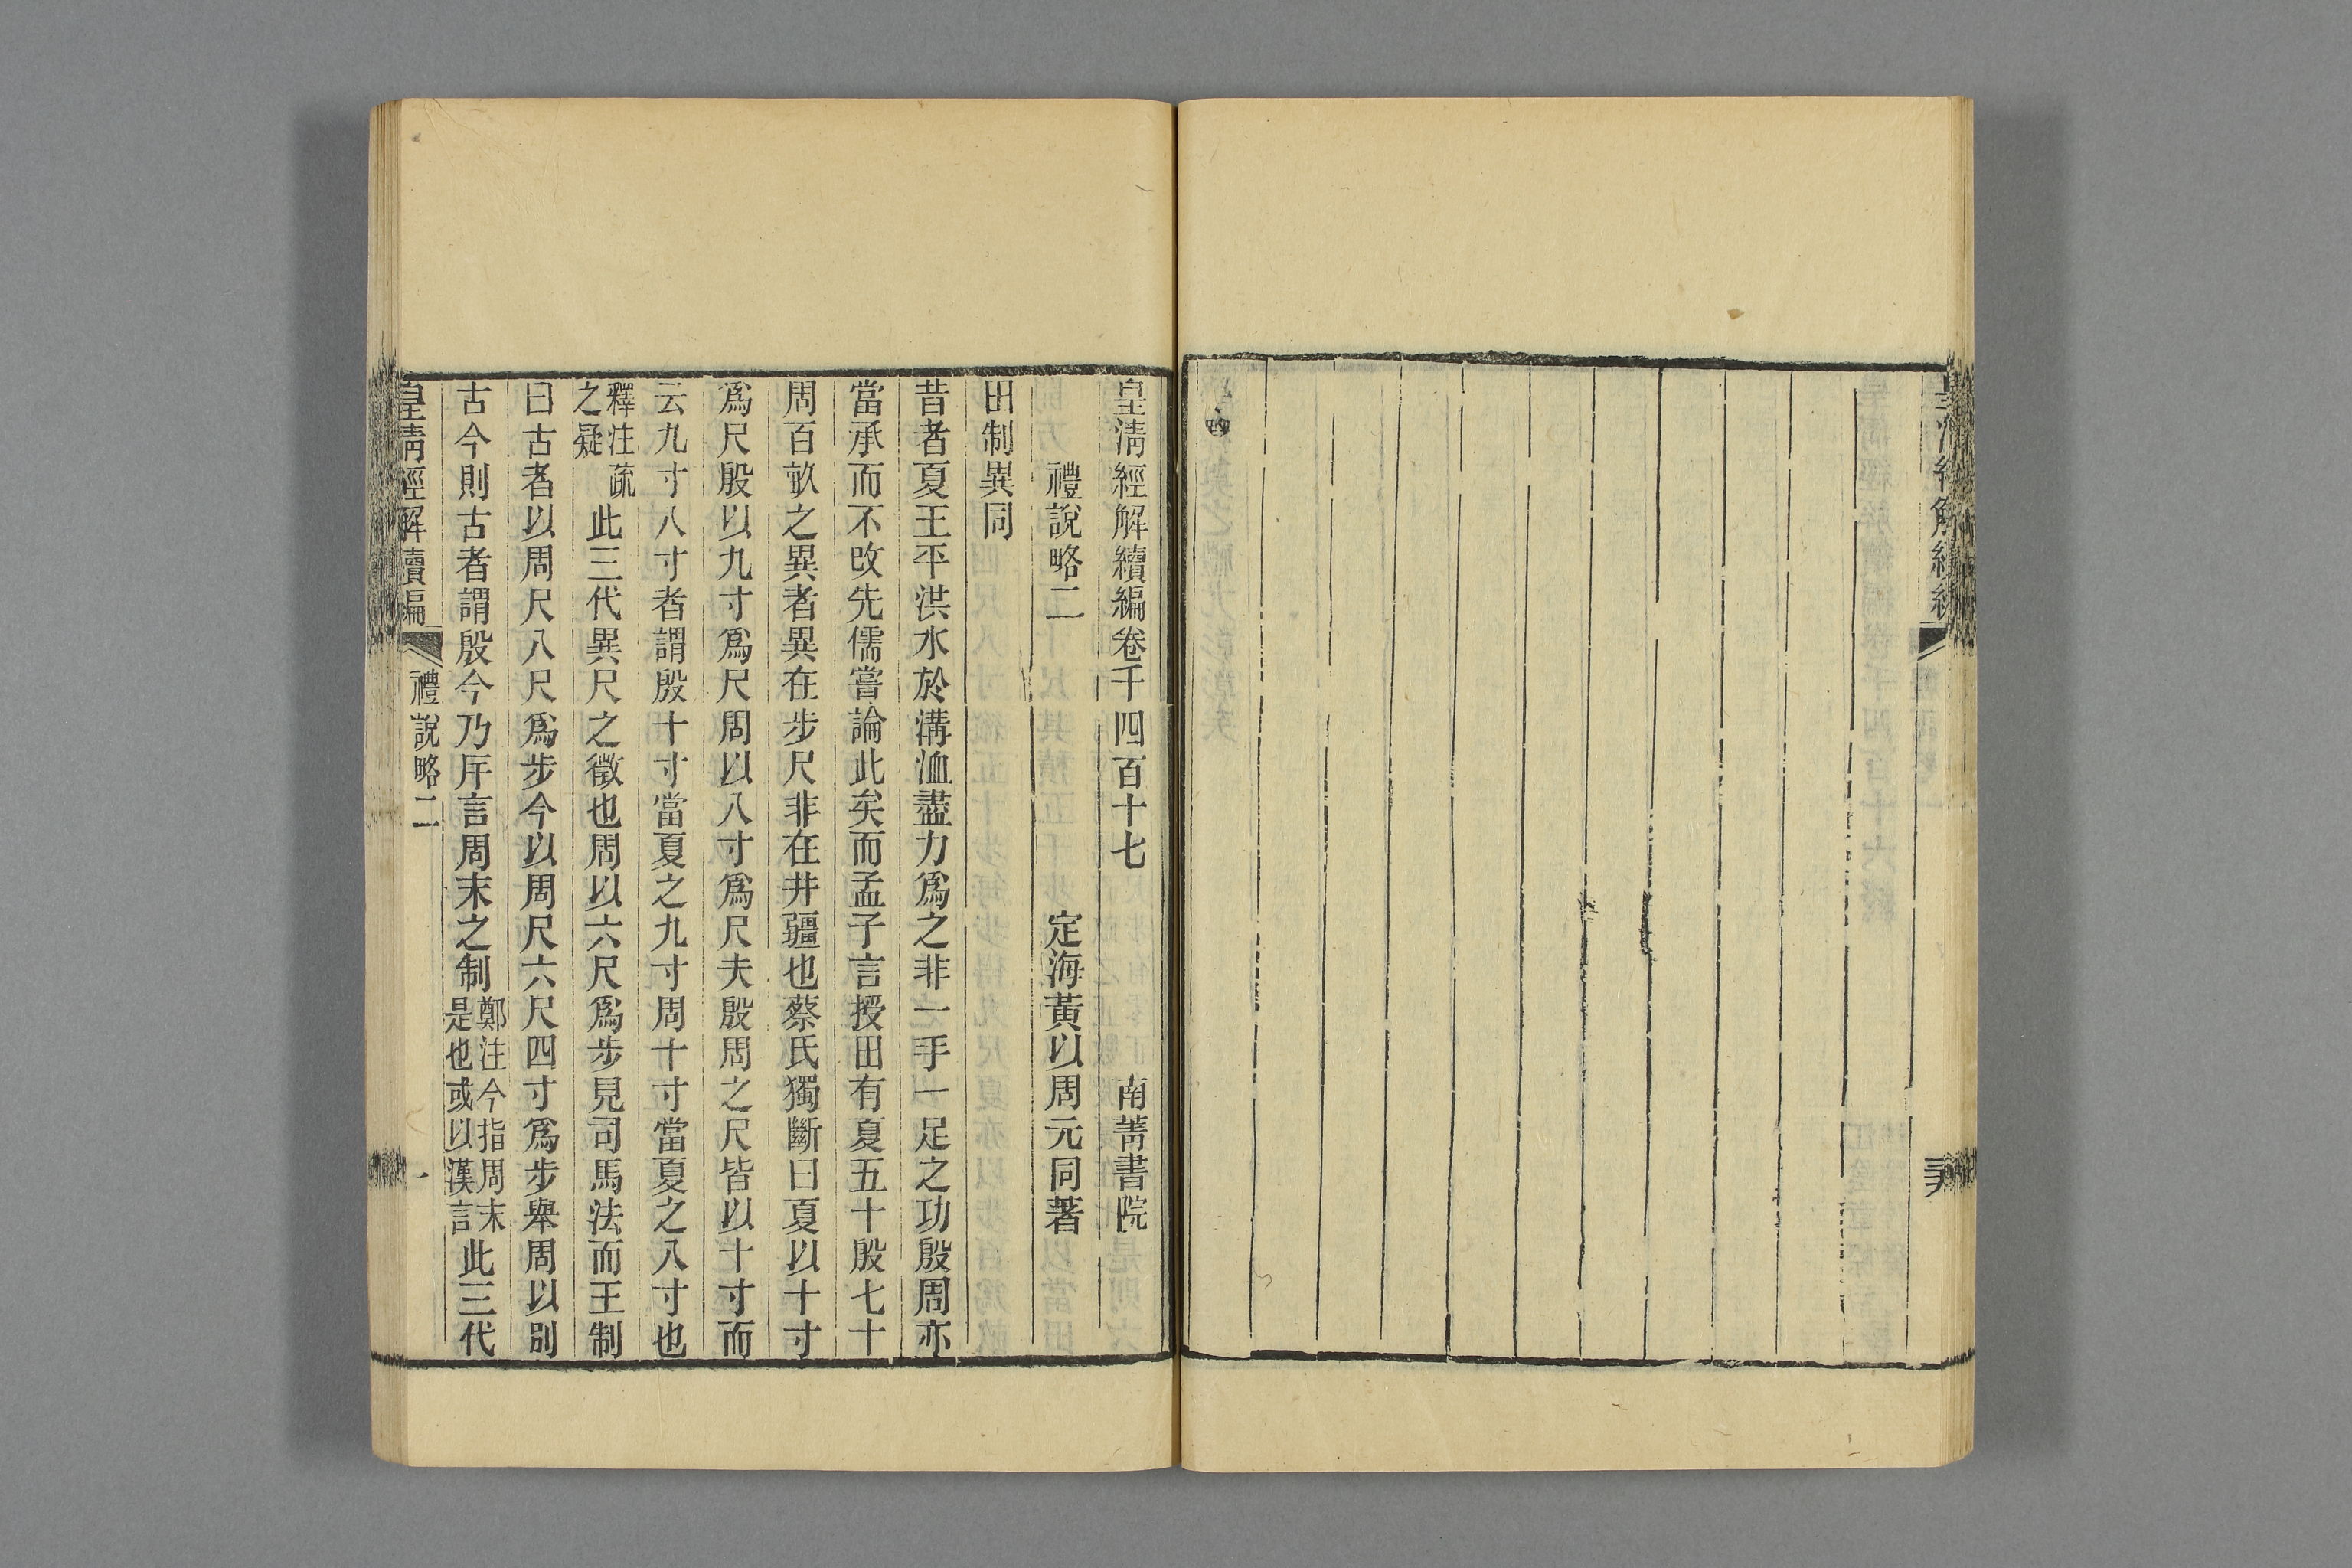 皇清經解續編卷千四百十七 南菁書院
禮說略二 定海黃以周元同著
田制異同
昔者夏王平洪水於溝洫盡力爲之非一手一足之功殷周亦
當承而不改先儒嘗論此矣而孟子言授田有夏五十殷七十
周百畝之異者異在步尺非在井疆也蔡氏獨斷曰夏以十寸
爲尺殷以九寸爲尺周以八寸爲尺夫殷周之尺皆以十寸而
云九寸八寸者謂殷十寸當夏之九寸周十寸當夏之八寸也
釋注疏
之疑
此三代異尺之徵也周以六尺爲步見司馬法而王制
曰古者以周尺八尺爲步今以周尺六尺四寸爲步舉周以別
古今則古者謂殷今乃斥言周末之制
鄭注今指周末
是也或以漢言
此三代
皇清經解續編 禮說略二 一